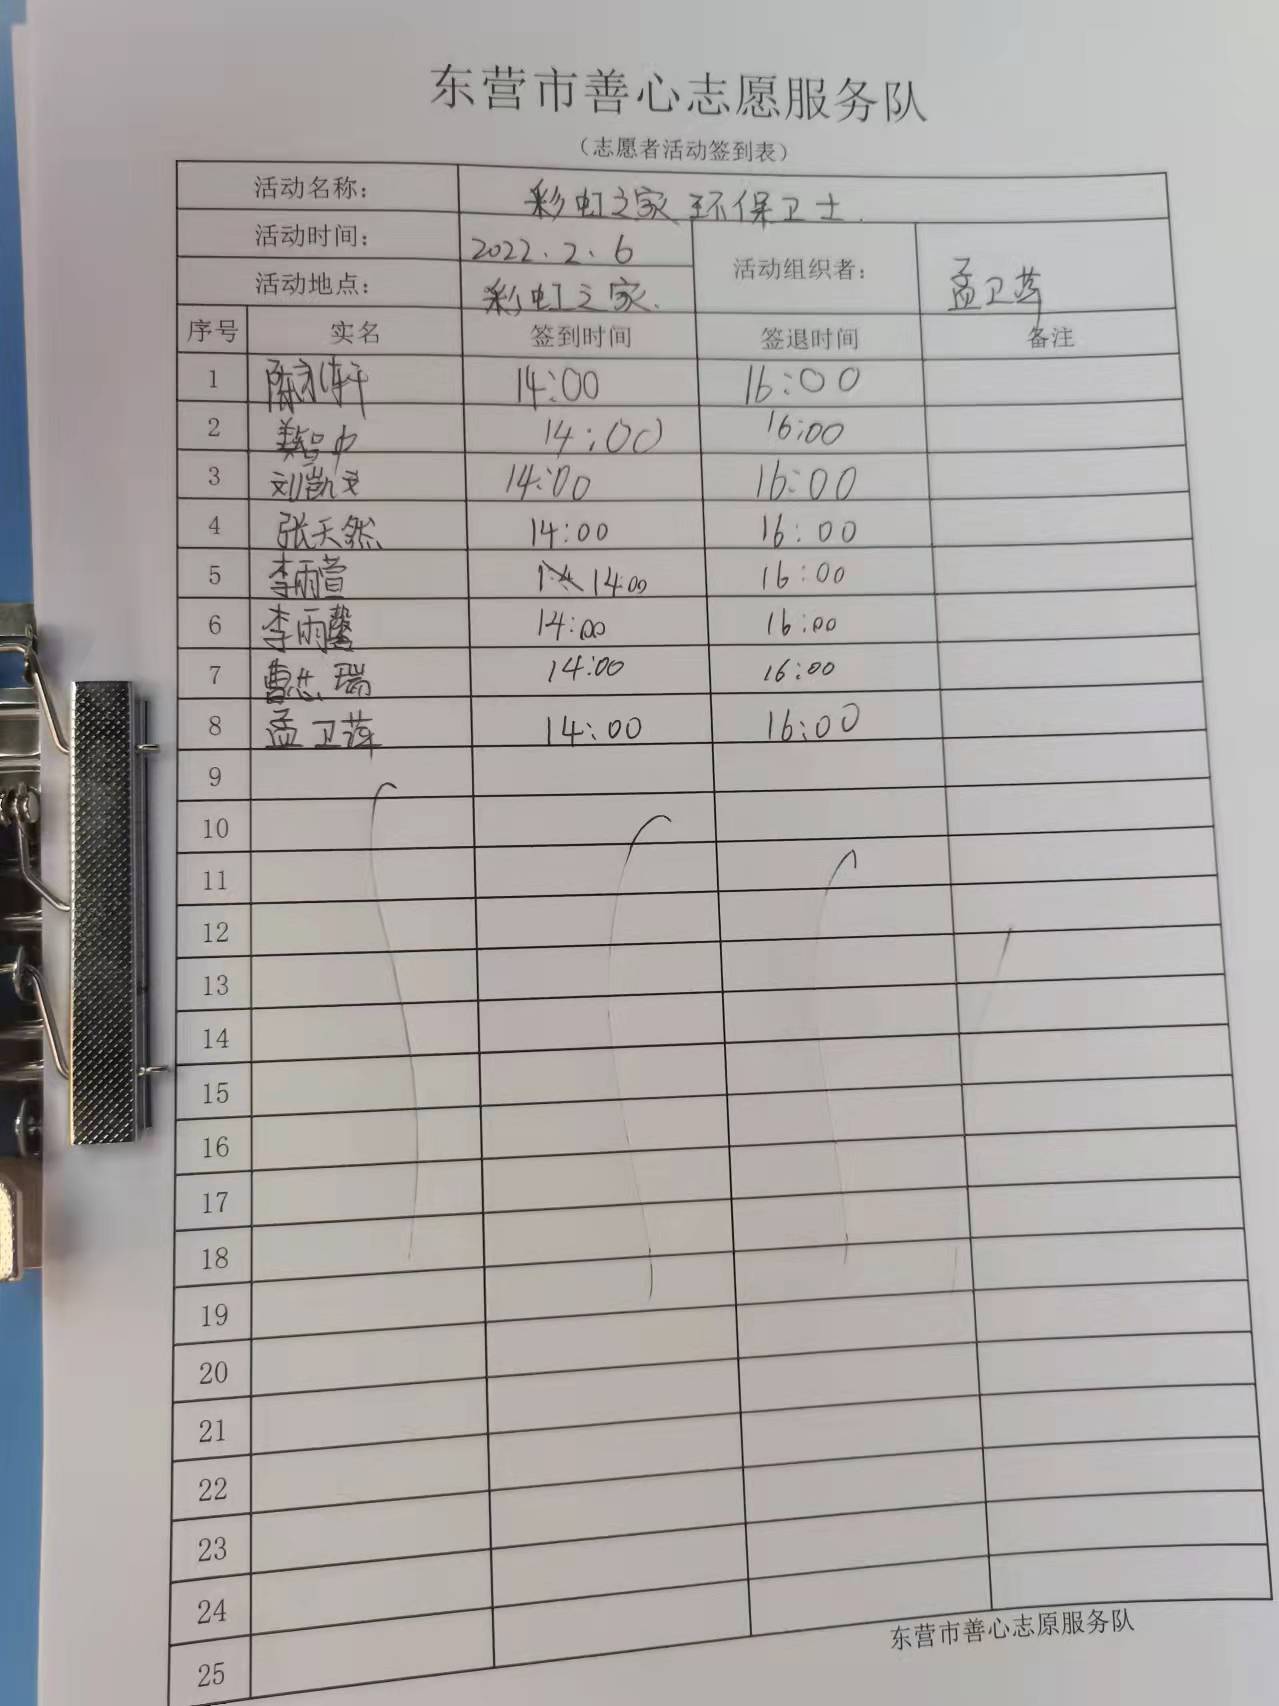 东营市善心志愿服务队
（志愿者活动签到表）
活动名称： 彩虹之家 环保卫士.
活动时间： 2022.2.6 活动组织者： 孟卫萍
活动地点： 彩虹之家.
序号 实名 签到时间 签退时间 备注
1 陈永轩 14:00 16:00
2 14:00 16:00
3 刘凯文 14:00 16:00
4 张天然 14:00 16:00
5 李雨萱 14:00 16:00
6 李雨馨 14:00 16:00
7 曹 瑞 14:00 16:00
8 孟卫萍 14:00 16:00
9
10
11
12
13
14
15
16
17
18
19
20
21
22
23
24
25
东营市善心志原服务队